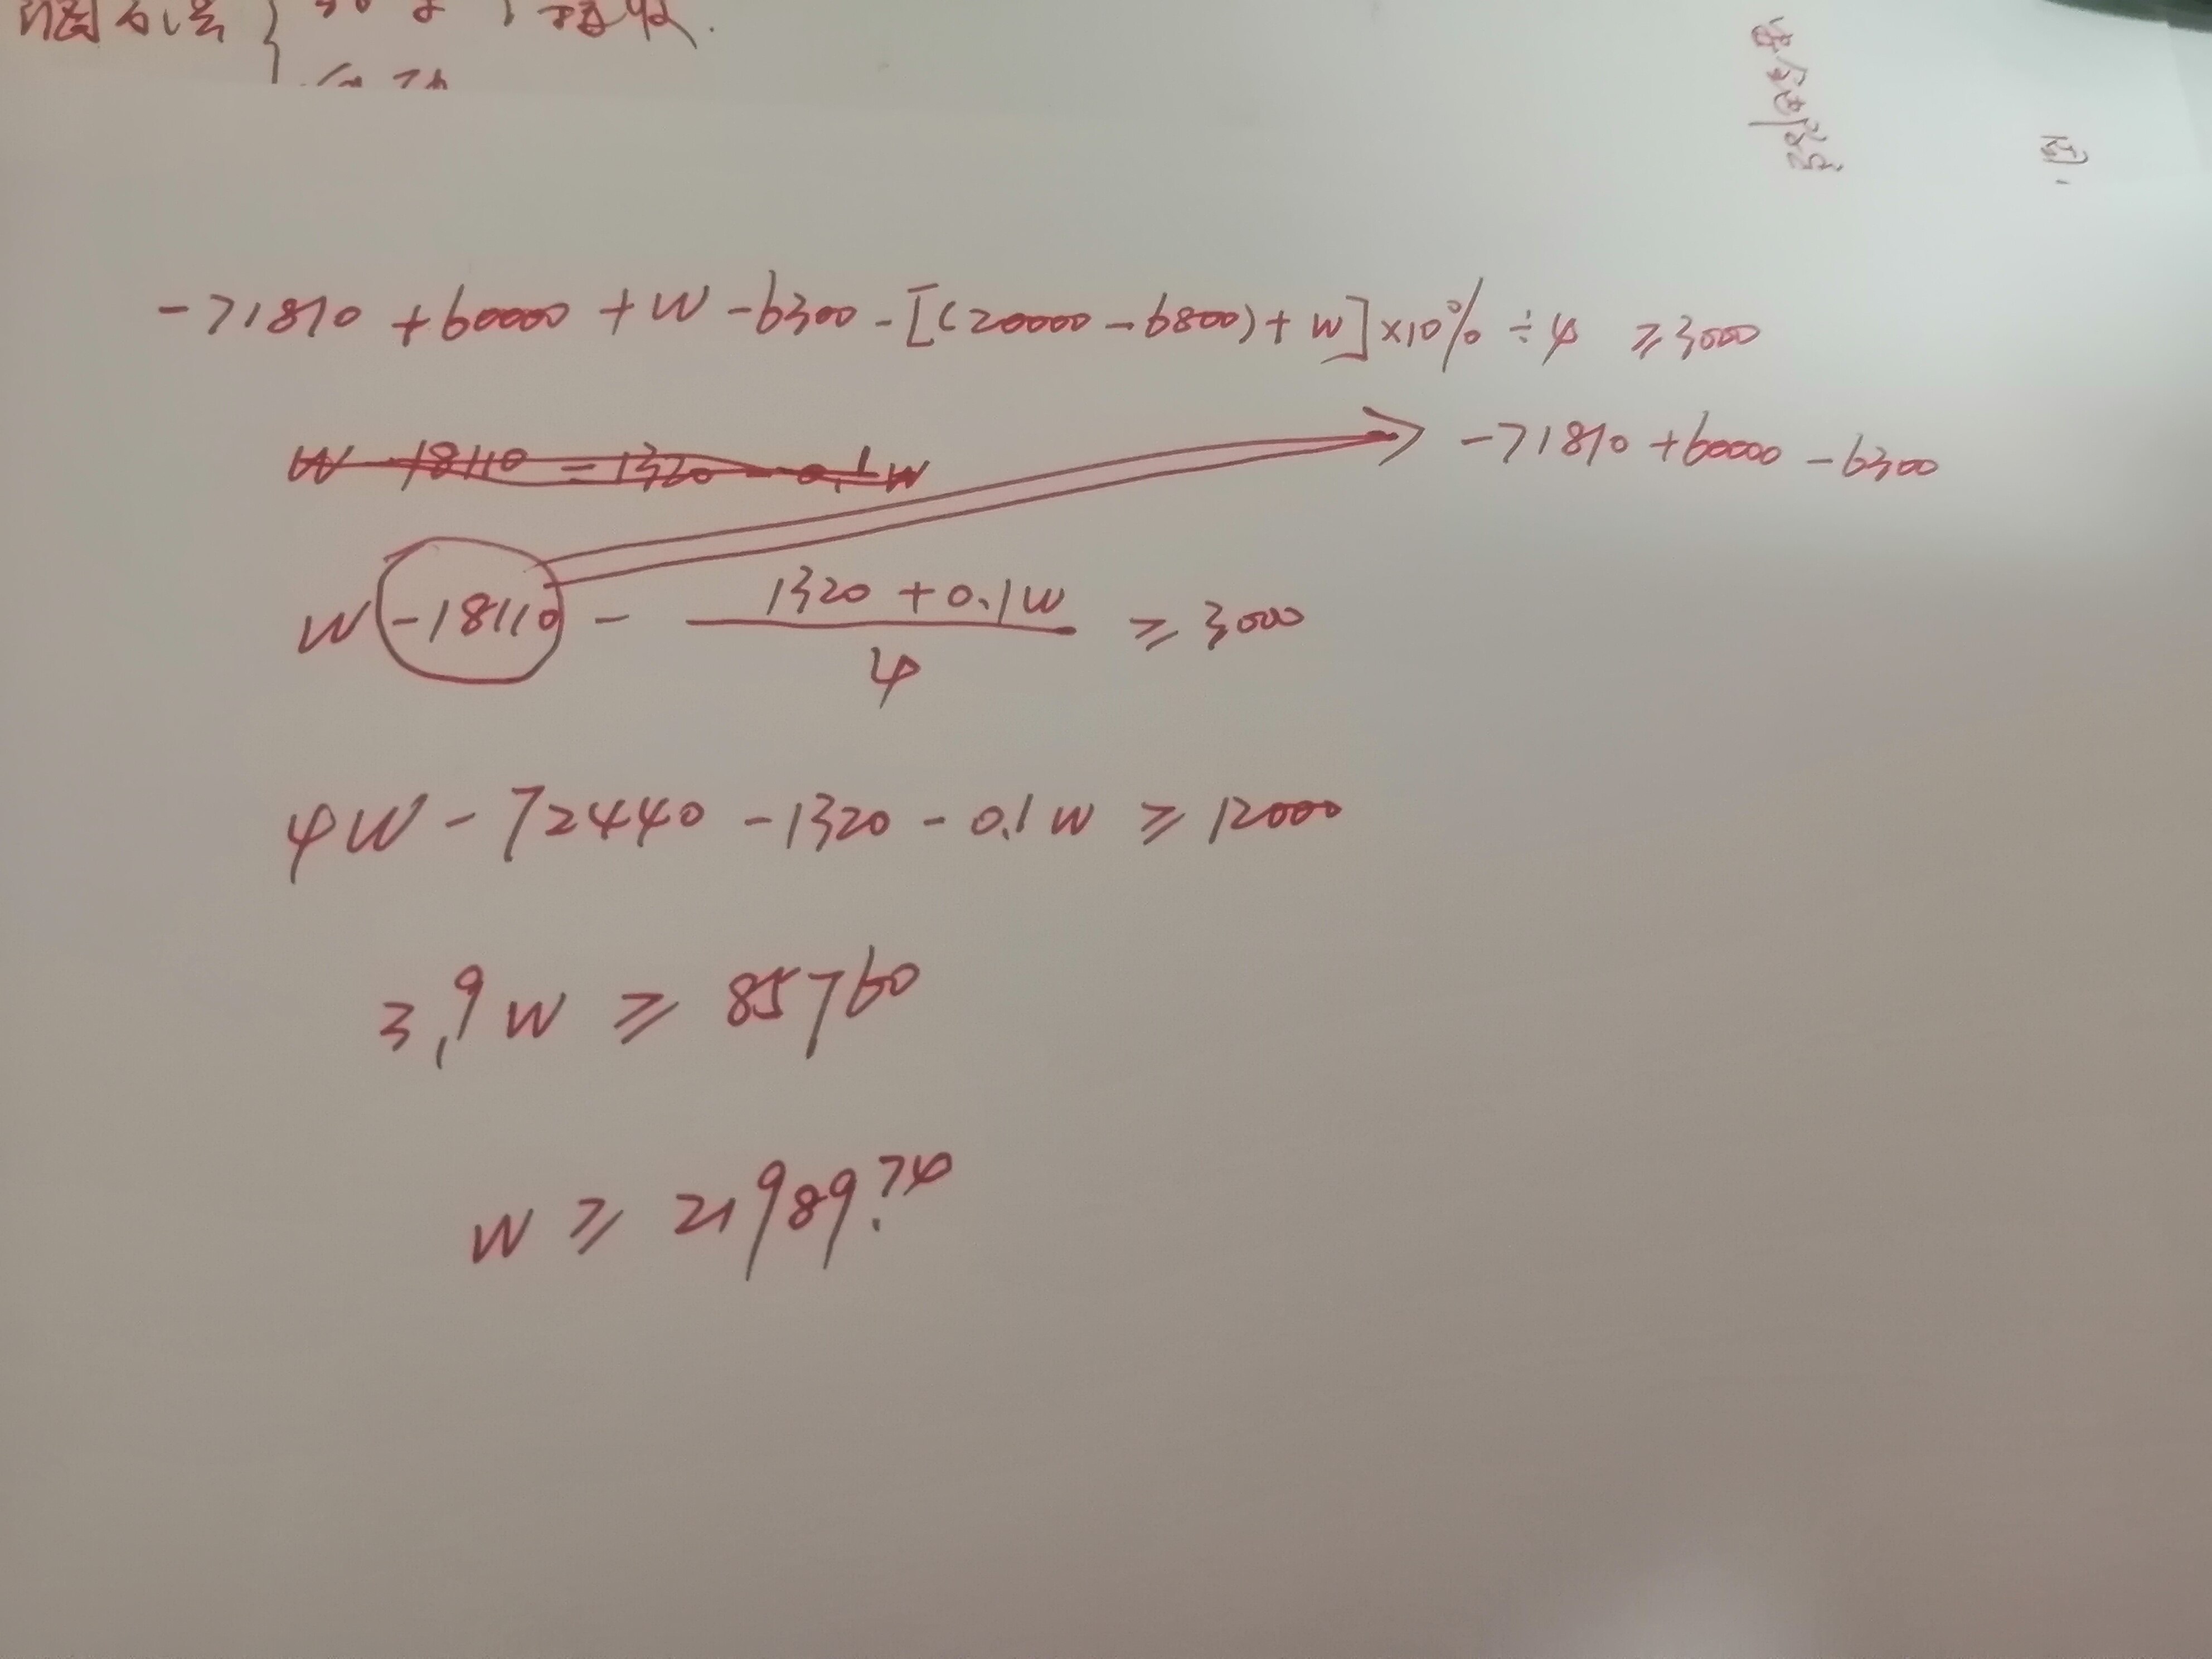 -71810 + 60000 + W - 6300 - [(20000 - 6800) + W] × 10% ÷ 4 ≥ 3000
W - 18110 - 1320 - 0.1W
-71810 + 60000 - 6300
W - 18110 - \frac{1320 + 0.1W}{4} ≥ 3000
4W - 72440 - 1320 - 0.1W ≥ 12000
3.9W ≥ 85760
W ≥ 21989.74